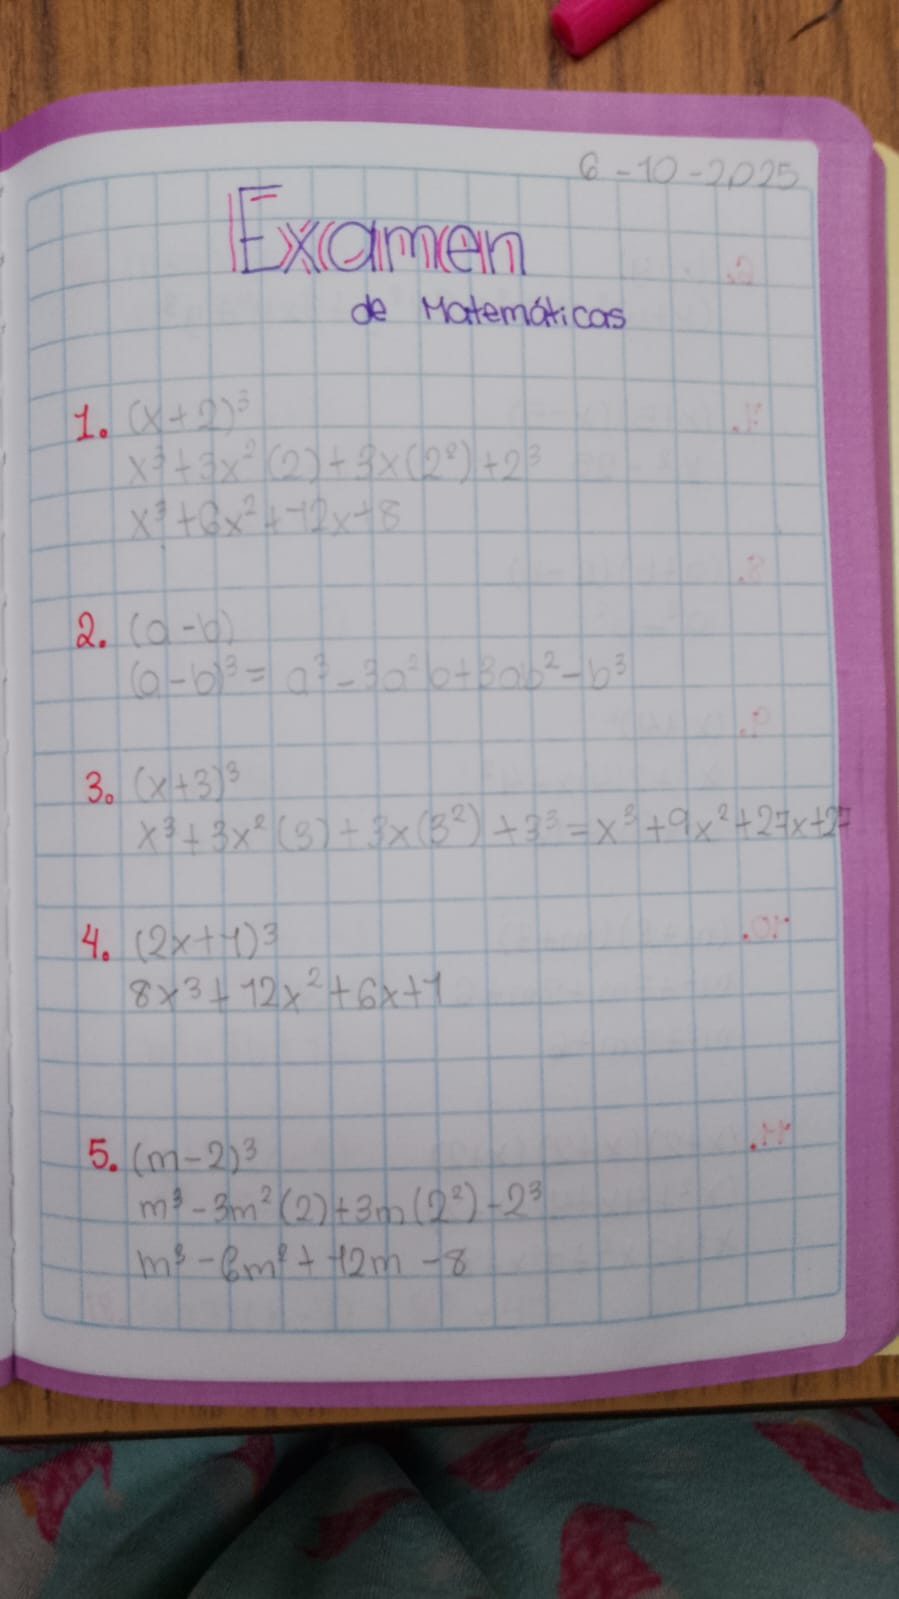 6-10-2025
Examen
de Matemáticas
1. (x+2)³
x³+3x²(2)+3x(2²)+2³
x³+6x²+12x+8
2. (a-b)
(a-b)³= a³-3a²b+3ab²-b³
3. (x+3)³
x³+3x²(3)+3x(3²)+3³=x³+9x²+27x+27
4. (2x+1)³
8x³+12x²+6x+1
5. (m-2)³
m³-3m²(2)+3m(2²)-2³
m³-6m²+12m-8